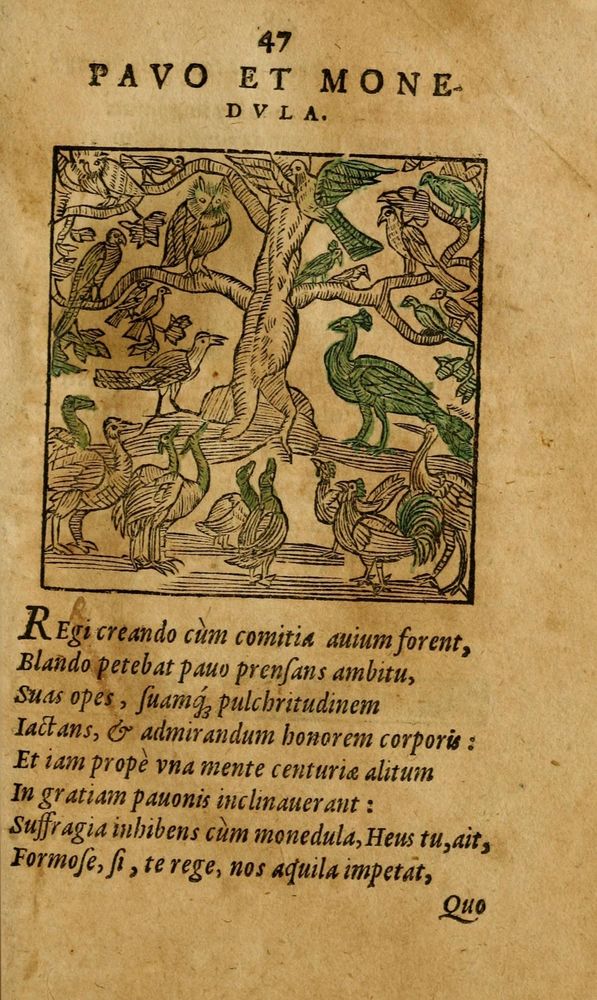 47
PAVO ET MONE-
DVLA.
REgi creando cùm comitia auium forent,
Blando petebat pauo prensans ambitu,
Suas opes, suamq́ꝫ pulchritudinem
Iactans, & admirandum honorem corporis:
Et iam propè vna mente centuriæ alitum
In gratiam pauonis inclinauerant:
Suffragia inhibens cùm monedula, Heus tu, ait,
Formose, si, te rege, nos aquila impetat,
Quo